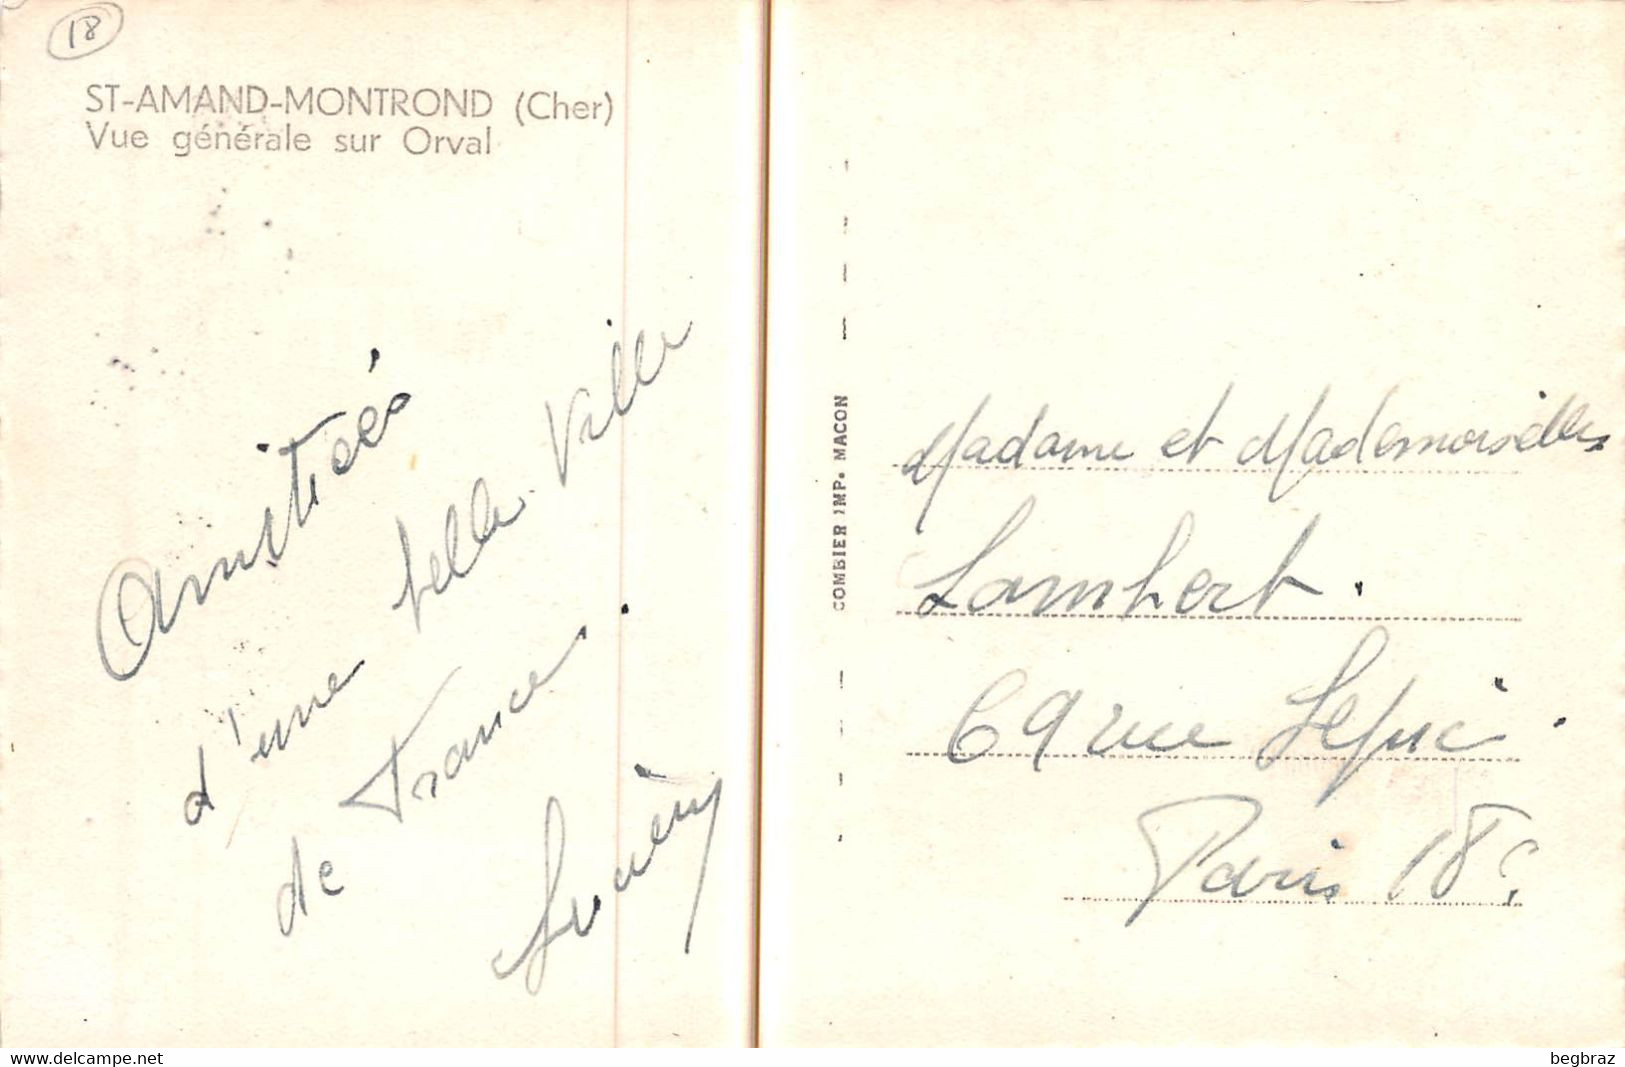 18
ST-AMAND-MONTROND (Cher)
Vue générale sur Orval
Amitiés
d'une belle Ville
de France.
COMBIER IMP. MACON
Madame et Mademoiselles
Lambert.
69 rue Lepic.
Paris 18e
www.delcampe.net
begbraz